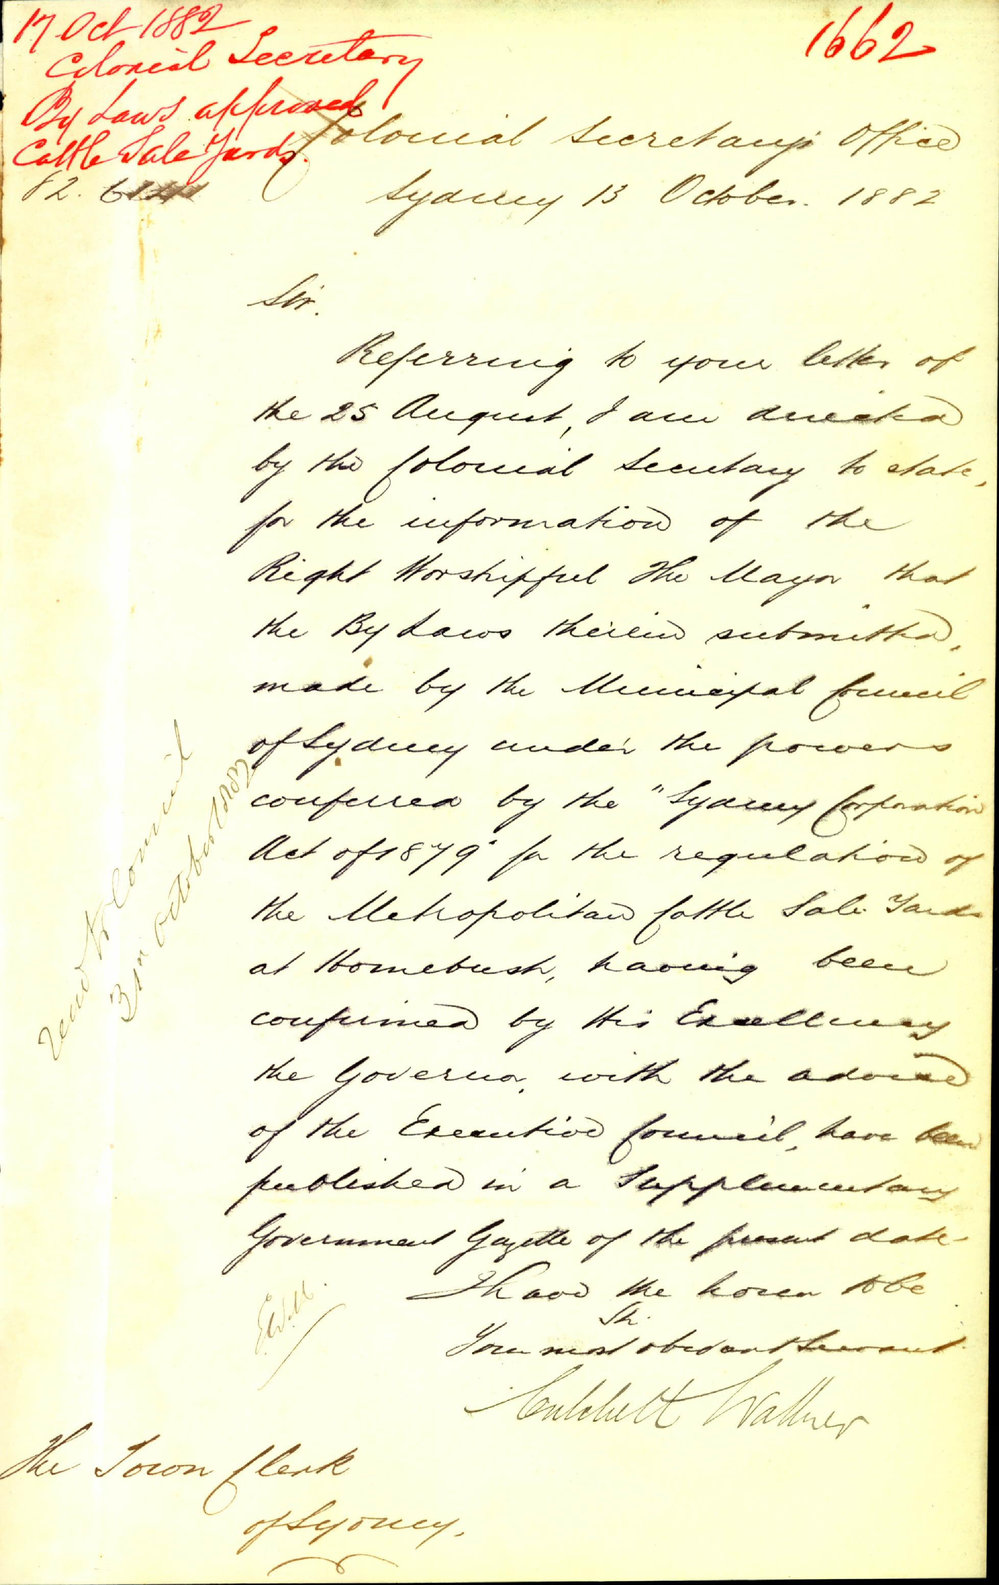 17 Oct 1882
Colonial Secretary
By Laws approved
Cattle Sale Yards.
82.
1662
Colonial Secretary's Office
Sydney 13 October. 1882
Sir.
Referring to your letter of
the 25 August, I am directed
by the Colonial Secretary to state,
for the information of the
Right Worshipful The Mayor that
the By Laws therein submitted,
made by the Municipal Council
of Sydney under the powers
conferred by the "Sydney Corporation
Act of 1879" for the regulation of
the Metropolitan Cattle Sale Yards
at Homebush, having been
confirmed by His Excellency
the Governor, with the advice
of the Executive Council, have been
published in a Supplementary
Government Gazette of the present date.
I have the honor to be
Sir.
Your most obedient Servant
Critchett Walker
The Town Clerk
of Sydney.
Read to Council
31st October 1882